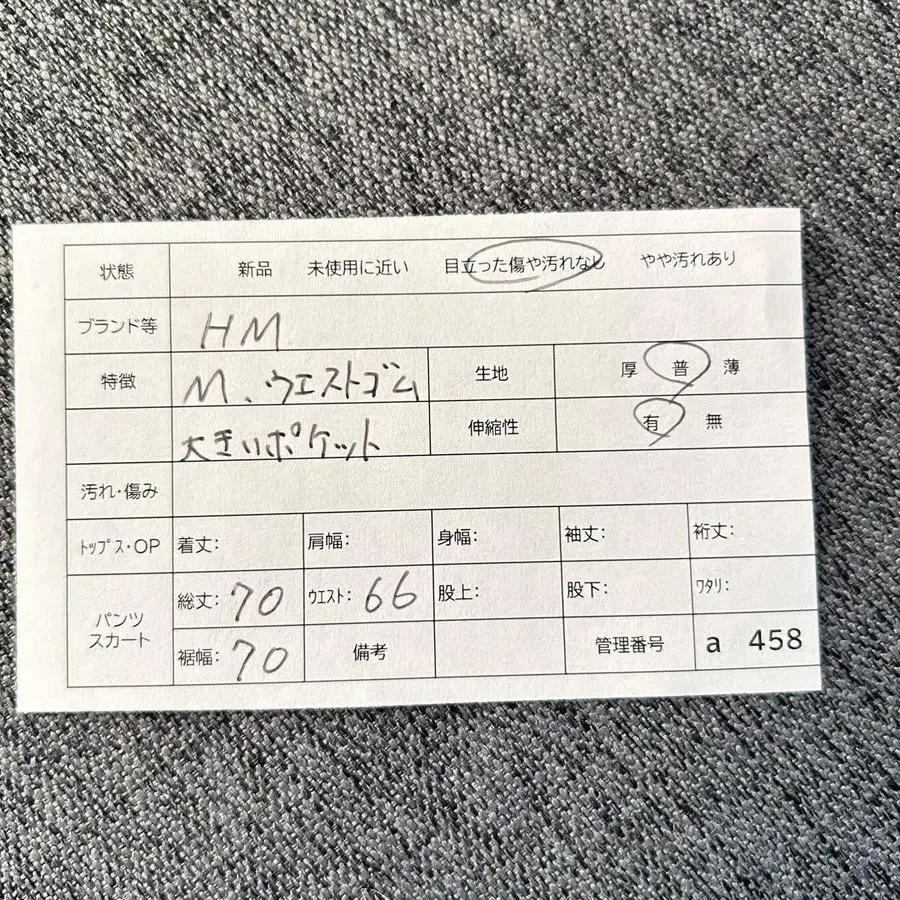 状態 新品 未使用に近い 目立った傷や汚れなし やや汚れあり
ブランド等 HM
特徴 M、ウエストゴム 生地 厚 普 薄
大きいポケット 伸縮性 有 無
汚れ・傷み
ﾄｯﾌﾟｽ・OP 着丈: 肩幅: 身幅: 袖丈: 裄丈:
パンツ スカート
総丈: 70 ｳｴｽﾄ: 66 股上: 股下: ﾜﾀﾘ:
裾幅: 70 備考 管理番号 a 458